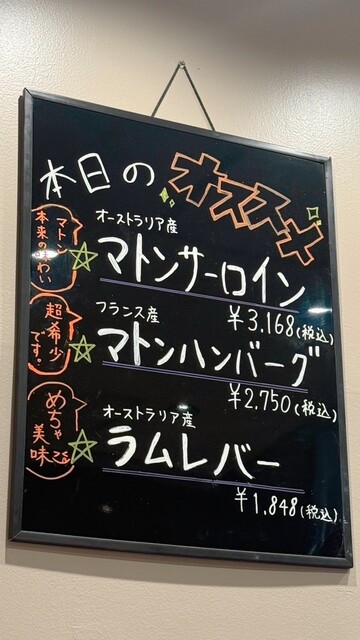 本日のオススメ
マトン
本来の味わい
オーストラリア産
☆マトンサーロイン
¥3,168(税込)
超希少
です。
フランス産
☆マトンハンバーグ
¥2,750(税込)
めちゃ
美味
オーストラリア産
☆ラムレバー
¥1,848(税込)